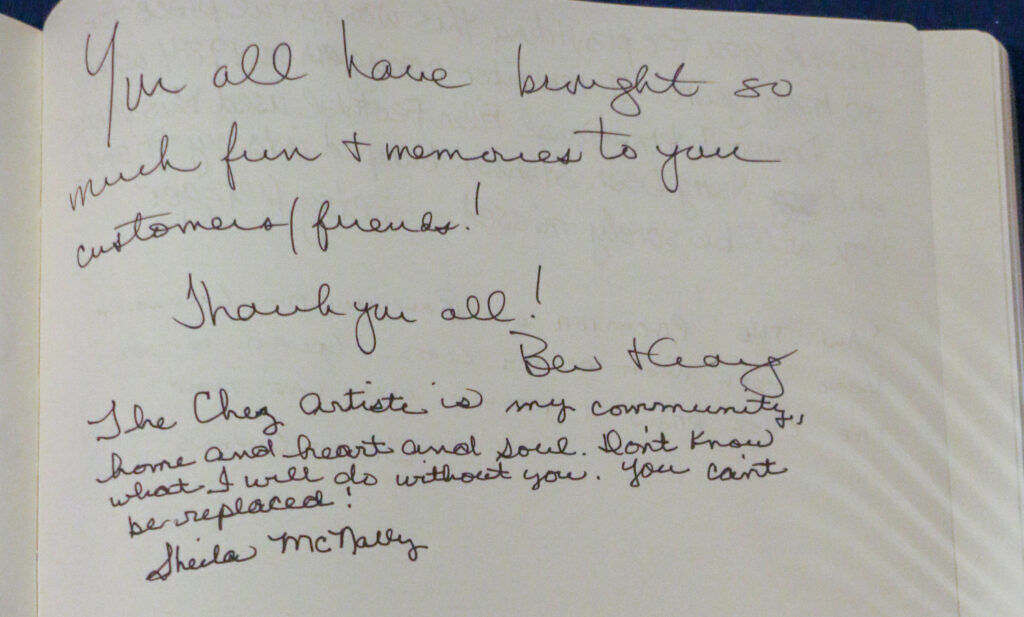 You all have brought so
much fun + memories to you
customers/friends!
Thank you all!
Bev + Craig
The Chez Artiste is my community,
home and heart and soul. Don't know
what I will do without you. You can't
be replaced!
Sheila McNally